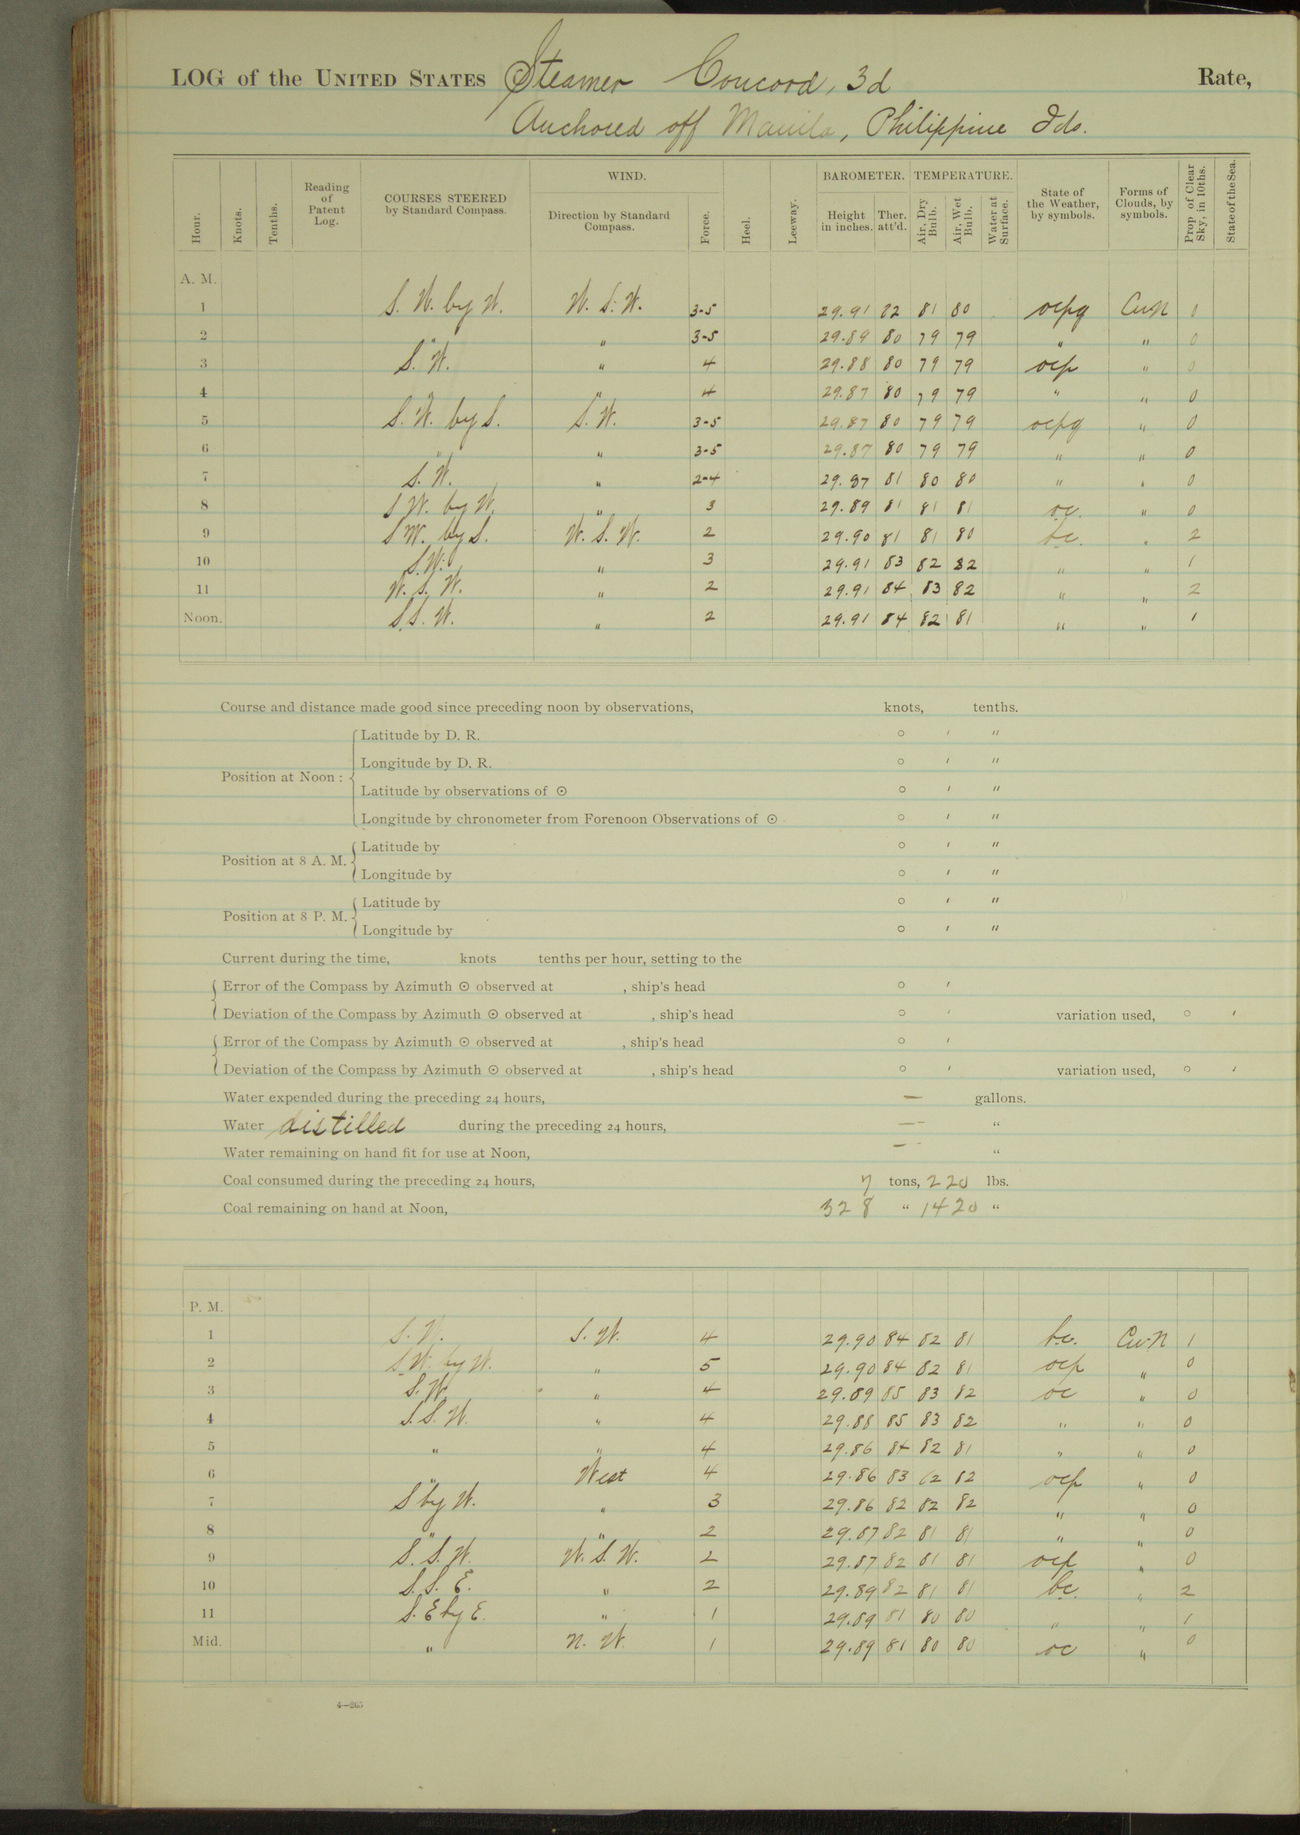 LOG of the UNITED STATES Steamer Concord, 3d Rate,
Anchored off Manila, Philippine Ids.
WIND. BAROMETER. TEMPERATURE.
Hour. Knots. Tenths. Reading of Patent Log. COURSES STEERED by Standard Compass. Direction by Standard Compass. Force. Heel. Leeway. Height in inches. Ther. att'd. Air, Dry Bulb. Air, Wet Bulb. Water at Surface. State of the Weather, by symbols. Forms of Clouds, by symbols. Prop. of Clear Sky, in 10ths. State of the Sea.
A. M.
1 S. W. by W. W. S. W. 3-5 29.91 82 81 80 ocpq CuN 0
2 " " 3-5 29.89 80 79 79 " " 0
3 S. W. " 4 29.88 80 79 79 ocp " 0
4 " " 4 29.87 80 79 79 " " 0
5 S. W. by S. S. W. 3-5 29.87 80 79 79 ocpq " 0
6 " " 3-5 29.87 80 79 79 " " 0
7 S. W. " 2-4 29.87 81 80 80 " " 0
8 S W. by W. " 3 29.89 81 81 81 oc. " 0
9 S W. by S. W. S. W. 2 29.90 81 81 80 bc. " 2
10 S. W. " 3 29.91 83 82 82 " " 1
11 W. S. W. " 2 29.91 84 83 82 " " 2
Noon. S. S. W. " 2 29.91 84 82 81 " " 1
Course and distance made good since preceding noon by observations, knots, tenths.
Position at Noon: Latitude by D. R. ° ′ ″
Longitude by D. R. ° ′ ″
Latitude by observations of ☉ ° ′ ″
Longitude by chronometer from Forenoon Observations of ☉ ° ′ ″
Position at 8 A. M. Latitude by ° ′ ″
Longitude by ° ′ ″
Position at 8 P. M. Latitude by ° ′ ″
Longitude by ° ′ ″
Current during the time, knots tenths per hour, setting to the
Error of the Compass by Azimuth ☉ observed at , ship's head ° ′
Deviation of the Compass by Azimuth ☉ observed at , ship's head ° ′ variation used, ° ′
Error of the Compass by Azimuth ☉ observed at , ship's head ° ′
Deviation of the Compass by Azimuth ☉ observed at , ship's head ° ′ variation used, ° ′
Water expended during the preceding 24 hours, — gallons.
Water distilled during the preceding 24 hours, — "
Water remaining on hand fit for use at Noon, — "
Coal consumed during the preceding 24 hours, 7 tons, 220 lbs.
Coal remaining on hand at Noon, 328 " 1420 "
P. M.
1 S. W. S. W. 4 29.90 84 82 81 bc. CuN 1
2 S W. by W. " 5 29.90 84 82 81 ocp " 0
3 S. W. " 4 29.89 85 83 82 oc " 0
4 S. S. W. " 4 29.88 85 83 82 " " 0
5 " " 4 29.86 84 82 81 " " 0
6 " West 4 29.86 83 82 82 ocp " 0
7 S by W. " 3 29.86 82 82 82 " " 0
8 " " 2 29.87 82 81 81 " " 0
9 S. S. W. W. S. W. 2 29.87 82 81 81 ocp " 0
10 S. S. E. " 2 29.89 82 81 81 bc. " 2
11 S. E by E. " 1 29.89 81 80 80 " " 1
Mid. " N. W. 1 29.89 81 80 80 oc " 0
4—265